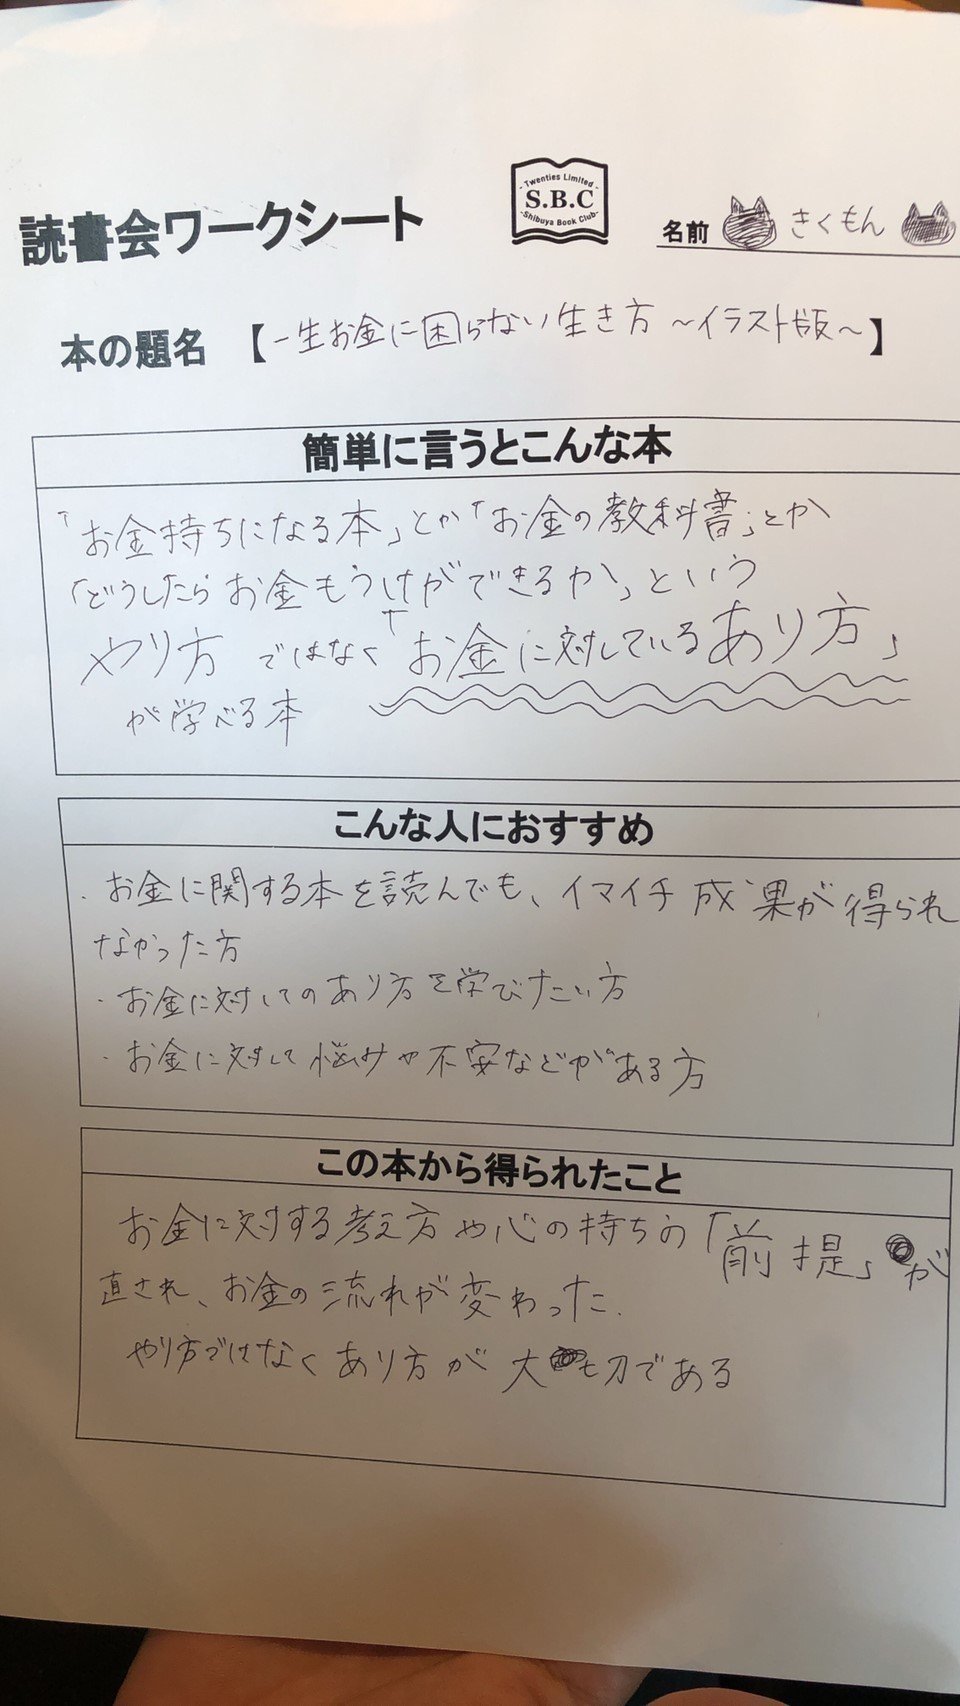 読書会ワークシート
- Twenties Limited -
S.B.C
-Shibuya Book Club-
名前 きくもん
本の題名 【一生お金に困らない生き方 ～イラスト版～】
簡単に言うとこんな本
「お金持ちになる本」とか「お金の教科書」とか
「どうしたらお金もうけができるか」という
やり方 ではなく「お金に対しているあり方」
が学べる本
こんな人におすすめ
・お金に関する本を読んでも、イマイチ成果が得られ
なかった方
・お金に対してのあり方を学びたい方
・お金に対して悩みや不安などがある方
この本から得られたこと
お金に対する考え方や心の持ちの「前提」が
直され、お金の流れが変わった.
やり方ではなくあり方が大切である